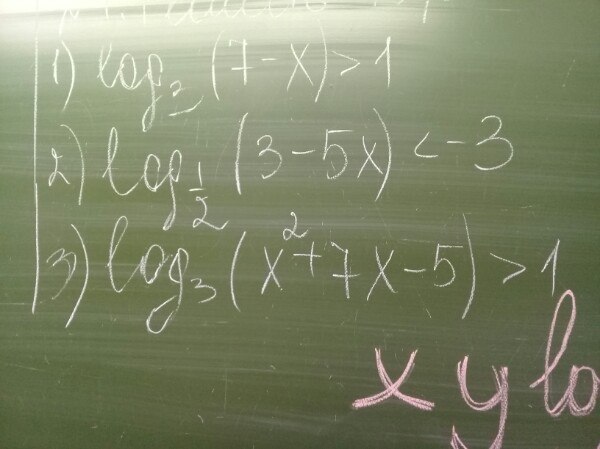 1) log₂ (7-x) > 1
2) log_{1/2} (3-5x) < -3
3) log₃ (x²+7x-5) > 1
x y lo